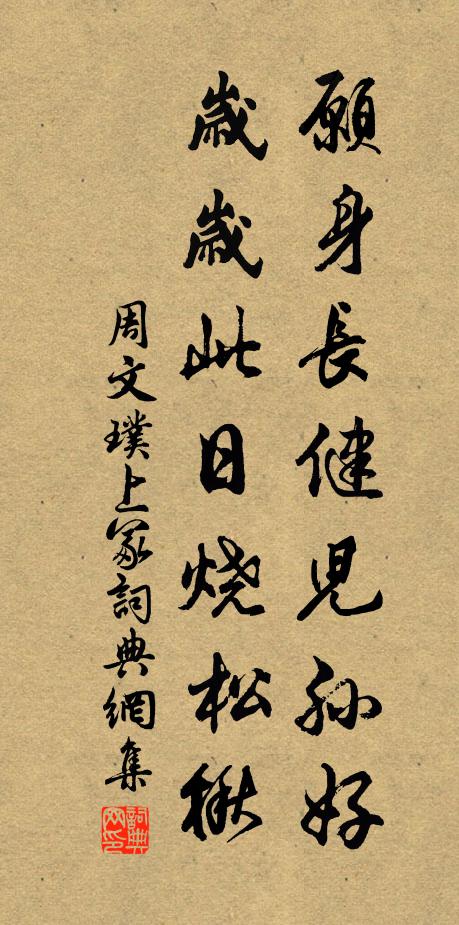 願身長健児孫好
歲歲此日燒松楸
周文璞上冢詞典網集
詞典网印